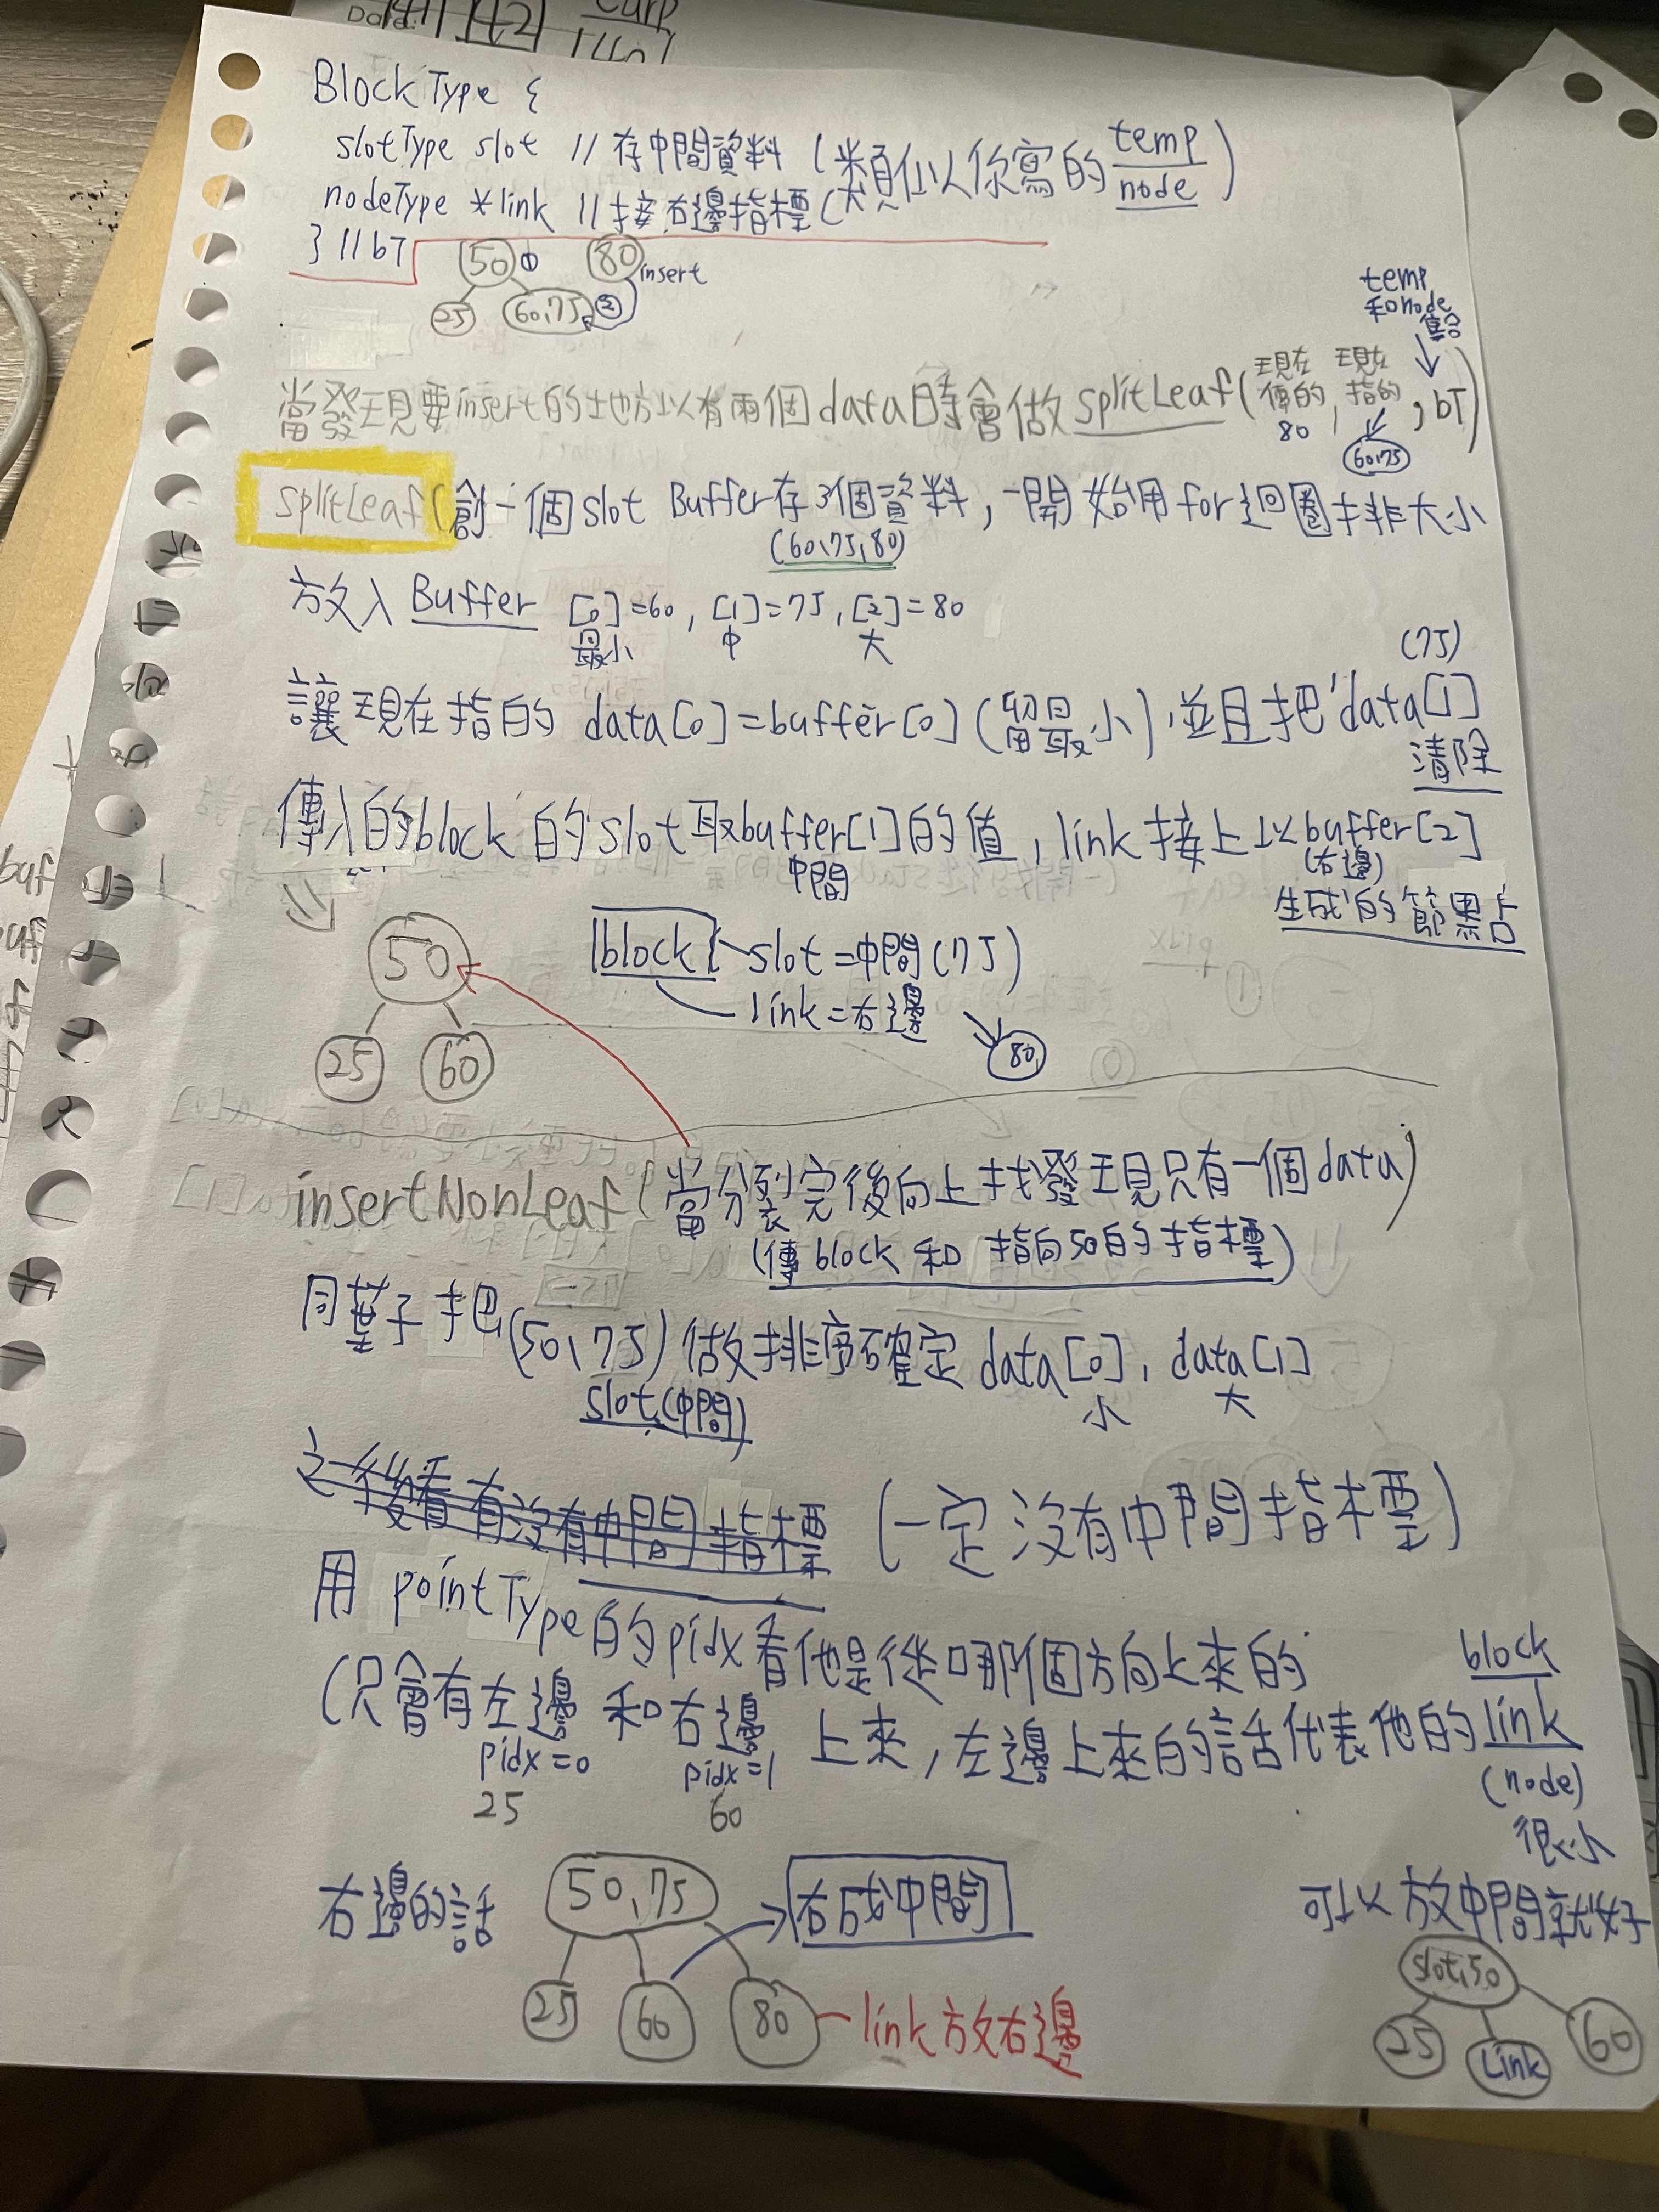 Date:
1421
BlockType {
slotType slot // 存中間資料 (類似以你寫的 temp node)
nodeType *link // 接右邊指標
} // bT
50 ① 80 insert
25 60,75 ②
temp
和node
集合
當發現要insert的地方以有兩個data時會做 splitLeaf(現在傳的, 現在指的, bT)
80 60,75
splitLeaf(創一個slot Buffer存3個資料, 一開始用for迴圈排大小
(60,75,80)
放入 Buffer [0]=60, [1]=75, [2]=80
最小 中 大
(75)
讓現在指的 data[0]=buffer[0] (留最小), 並且把data[1]
清除
傳入的block的slot取buffer[1]的值, link接上以buffer[2]
中間 (右邊)
生成的節點
50
25 60
block slot=中間(75)
link=右邊
80
insertNonLeaf(當分裂完後向上找發現只有一個data)
(傳block和指向50的指標)
同葉子把(50,75)做排序確定data[0], data[1]
slot(中間) 小 大
之後看有沒有中間指標 (一定沒有中間指標)
用 pointType的pidx看他是從哪個方向上來的
(只會有左邊和右邊上來, 左邊上來的話代表他的 block link
pidx=0 pidx=1 (node)
25 60 很小
右邊的話 50,75 右成中間 可以放中間就好
25 60 80 link放右邊
slot,50
25 Link 60